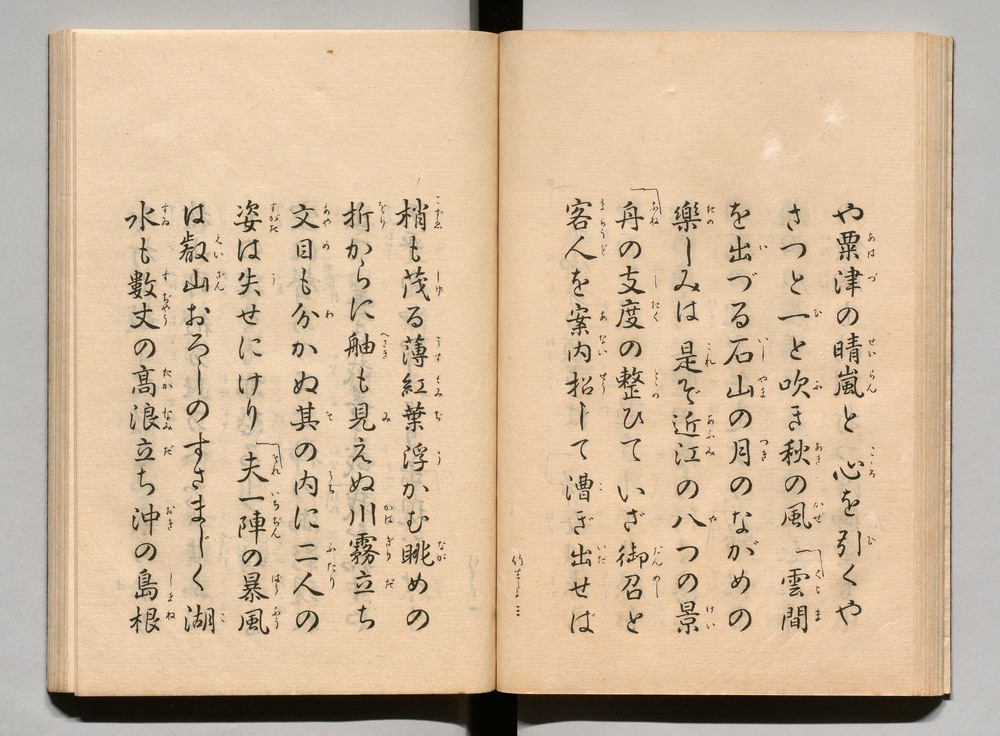 や粟津の晴嵐と心を引くや
さつと一と吹き秋の風「雲間
を出づる石山の月のながめの
樂しみは是ぞ近江の八つの景
「舟の支度の整ひていざ御召と
客人を案内招じて漕ぎ出せば
梢も茂る薄紅葉浮かむ眺めの
折からに舳も見えぬ川霧立ち
文目も分かぬ其の内に二人の
姿は失せにけり「夫一陣の暴風
は叡山おろしのすさまじく湖
水も數丈の高浪立ち沖の島根